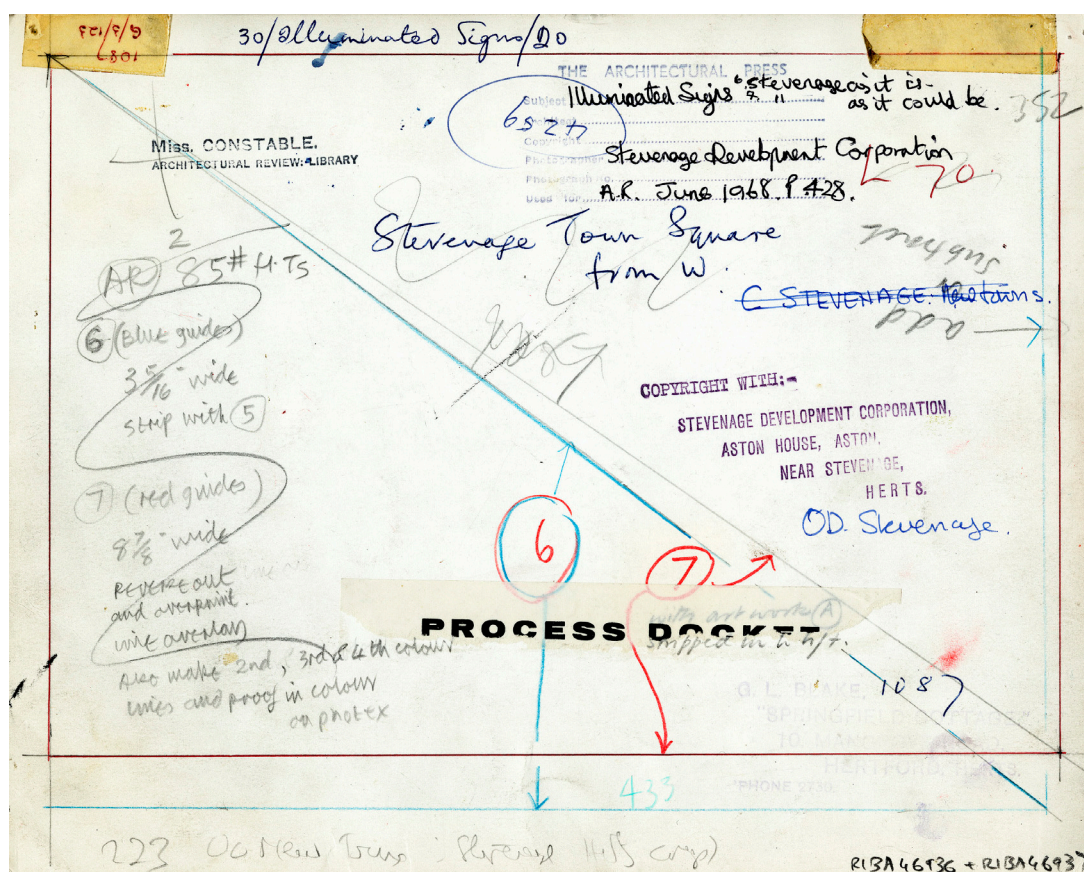 6/3/123
1087
30/Illuminated Signs/20
THE ARCHITECTURAL PRESS
Subject Illuminated Signs 6 Stevenage as it is
7 " as it could be.
352
6527
Copyright
Photographer Stevenage Development Corporation
Photograph No.
Used for A.R. June 1968. P 428.
70
Miss. CONSTABLE.
ARCHITECTURAL REVIEW: LIBRARY
Stevenage Town Square
from W.
C STEVENAGE: New towns.
subtract
or
add
2
AR 85# H.Ts
6 (Blue guides)
3 5/16" wide
strip with 5
7 (red guides)
8 7/8" wide
REVERSE OUT
and overprint
line overlay
Also make 2nd, 3rd & 4th colour
lines and proof in colour
on photex
COPYRIGHT WITH:-
STEVENAGE DEVELOPMENT CORPORATION,
ASTON HOUSE, ASTON.
NEAR STEVENAGE,
HERTS.
OD. Stevenage.
6
7
with artwork A
stripped in to h/t.
PROCESS DOCKET
1087
G. L. BLAKE,
"SPRINGFIELD COTTAGE"
HERTFORD, HERTS.
'PHONE 2730
433
223
Stevenage
RIBA46936 + RIBA46937